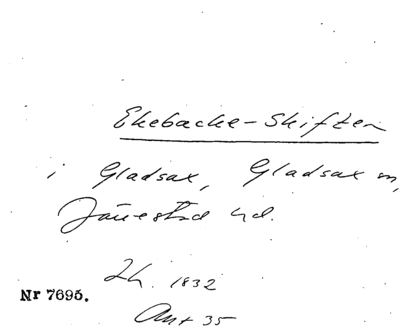 Ekebacke-Skiften
i Gladsax, Gladsax sn,
Järrestad hd.
Lh. 1832
Nr 7695.
Akt 35